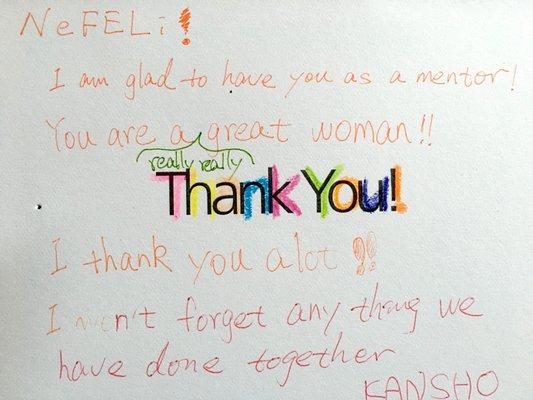 NeFELi!
I am glad to have you as a mentor!
You are a great woman!!
really really
Thank You!
I thank you alot !!
I won't forget any thing we
have done together
KANSHO